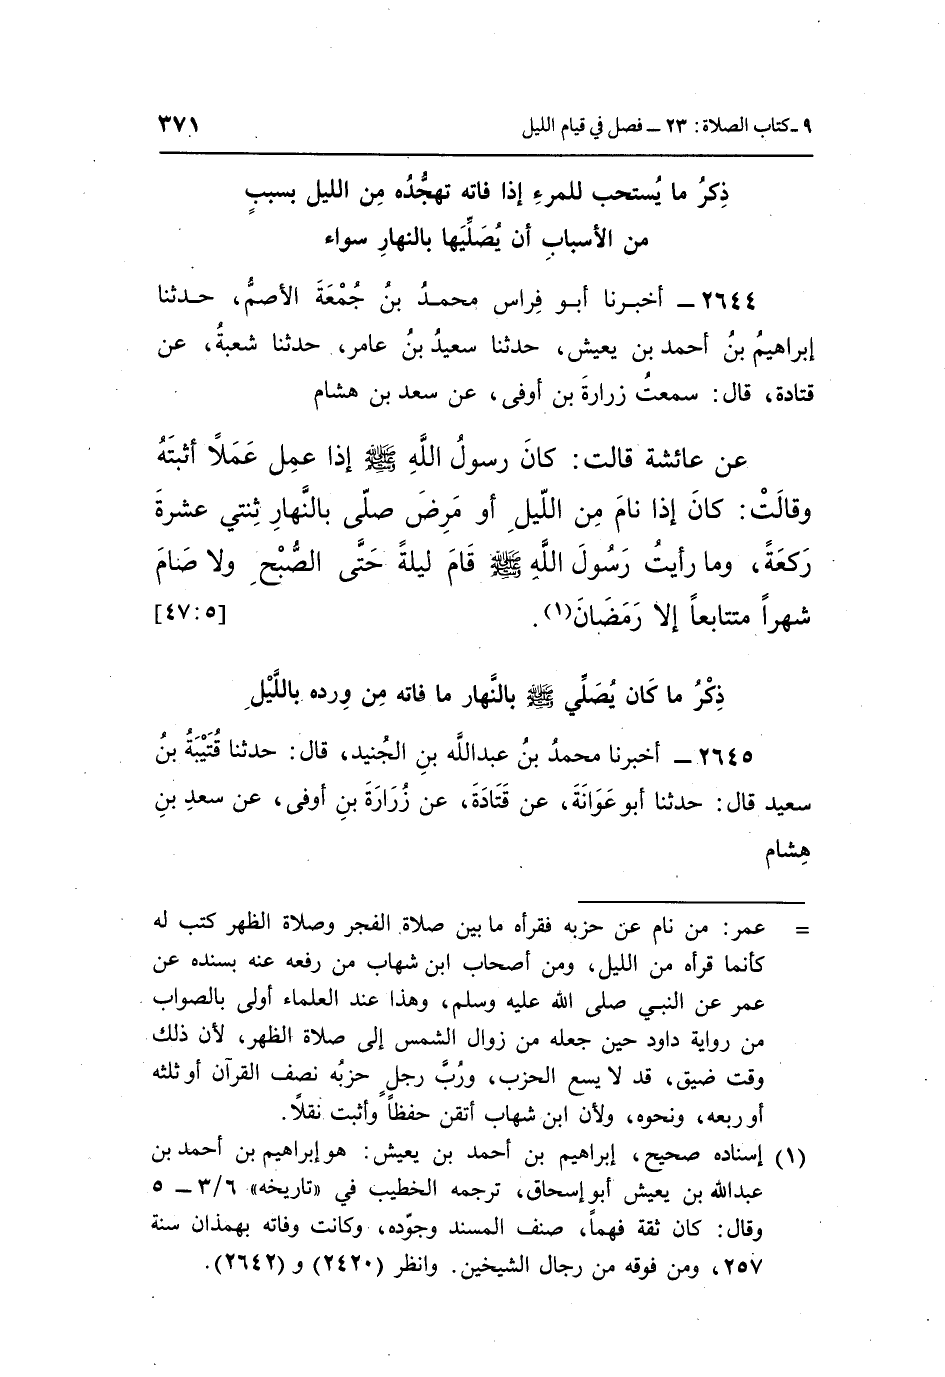 ٩ - كتاب الصلاة: ٢٣ ــ فصل في قيام الليل ٣٧١
ذِكرُ ما يُستحب للمرءِ إذا فاته تهجُّدُه مِن الليل بسببٍ
من الأسبابِ أن يُصَلِّيَها بالنهارِ سواء
٢٦٤٤ ــ أخبرنا أبو فِراس محمدُ بنُ جُمْعَةَ الأصمُّ، حدثنا
إبراهيمُ بنُ أحمد بن يعيش، حدثنا سعيدُ بنُ عامر، حدثنا شعبةُ، عن
قتادة، قال: سمعتُ زرارةَ بن أوفى، عن سعد بن هشام
عن عائشة قالت: كانَ رسولُ اللَّهِ ﷺ إذا عمِل عَمَلًا أثبتَهُ
وقالَتْ: كانَ إذا نامَ مِن اللّيلِ أو مَرِضَ صلّى بالنَّهارِ ثِنتي عشرةَ
رَكعَةً، وما رأيتُ رَسُولَ اللَّهِ ﷺ قَامَ ليلةً حَتَّى الصُّبْحِ ولا صَامَ
شهراً متتابعاً إلا رَمَضَانَ(١). [٤٧:٥]
ذِكْرُ ما كَان يُصَلِّي ﷺ بالنَّهار ما فاته مِن وِرده باللَّيْلِ
٢٦٤٥ ــ أخبرنا محمدُ بنُ عبداللَّه بنِ الجُنيد، قال: حدثنا قُتَيْبَةُ بنُ
سعيد قال: حدثنا أبو عَوَانَةَ، عن قَتَادَةَ، عن زُرَارَةَ بنِ أوفى، عن سعدِ بنِ
هِشام
= عمر: من نام عن حزبه فقرأه ما بين صلاة الفجر وصلاة الظهر كتب له
كأنما قرأه من الليل، ومن أصحاب ابن شهاب من رفعه عنه بسنده عن
عمر عن النبي صلى الله عليه وسلم، وهذا عند العلماء أولى بالصواب
من رواية داود حين جعله من زوال الشمس إلى صلاة الظهر، لأن ذلك
وقت ضيق، قد لا يسع الحزب، ورُبَّ رجلٍ حزبُه نصف القرآن أو ثلثه
أو ربعه، ونحوه، ولأن ابن شهاب أتقن حفظاً وأثبت نقلاً.
(١) إسناده صحيح، إبراهيم بن أحمد بن يعيش: هو إبراهيم بن أحمد بن
عبدالله بن يعيش أبو إسحاق، ترجمه الخطيب في «تاريخه» ٣/٦ ــ ٥
وقال: كان ثقة فهماً، صنف المسند وجوّده، وكانت وفاته بهمذان سنة
٢٥٧، ومن فوقه من رجال الشيخين. وانظر (٢٤٢٠) و (٢٦٤٢).